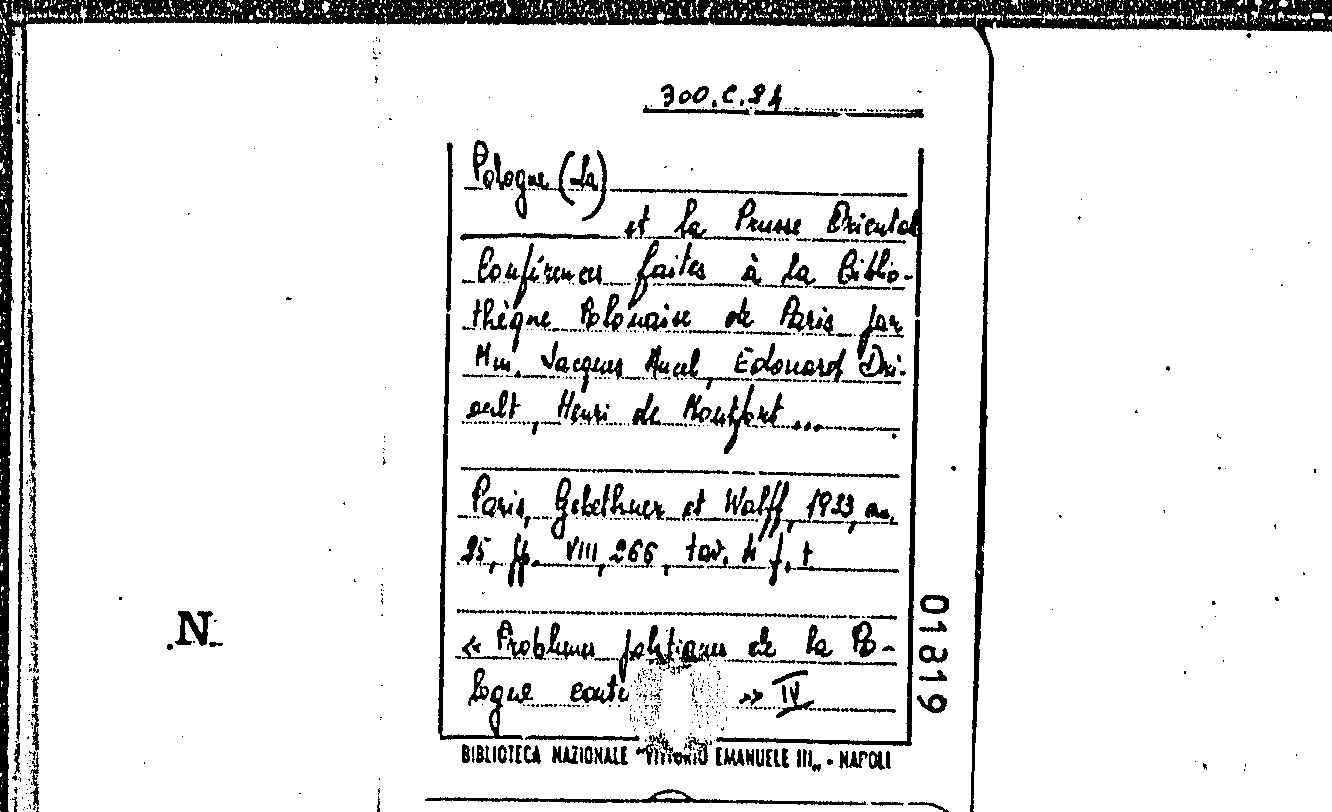 300.C.94
Pologne (La)
et la Prusse Oriental
Conférences faites à la Biblio-
thèque Polonaise de Paris par
Mm. Jacques Ancel, Edouard Dri-
ault, Henri de Montfort...
Paris, Gebethner et Wolff, 1933, cm.
25, pp. VIII, 266, tav. 4 f. t
« Problemes politiques de la Po-
logne conte » IV
01819
N.
BIBLIOTECA NAZIONALE "VITTORIO EMANUELE III„ - NAPOLI